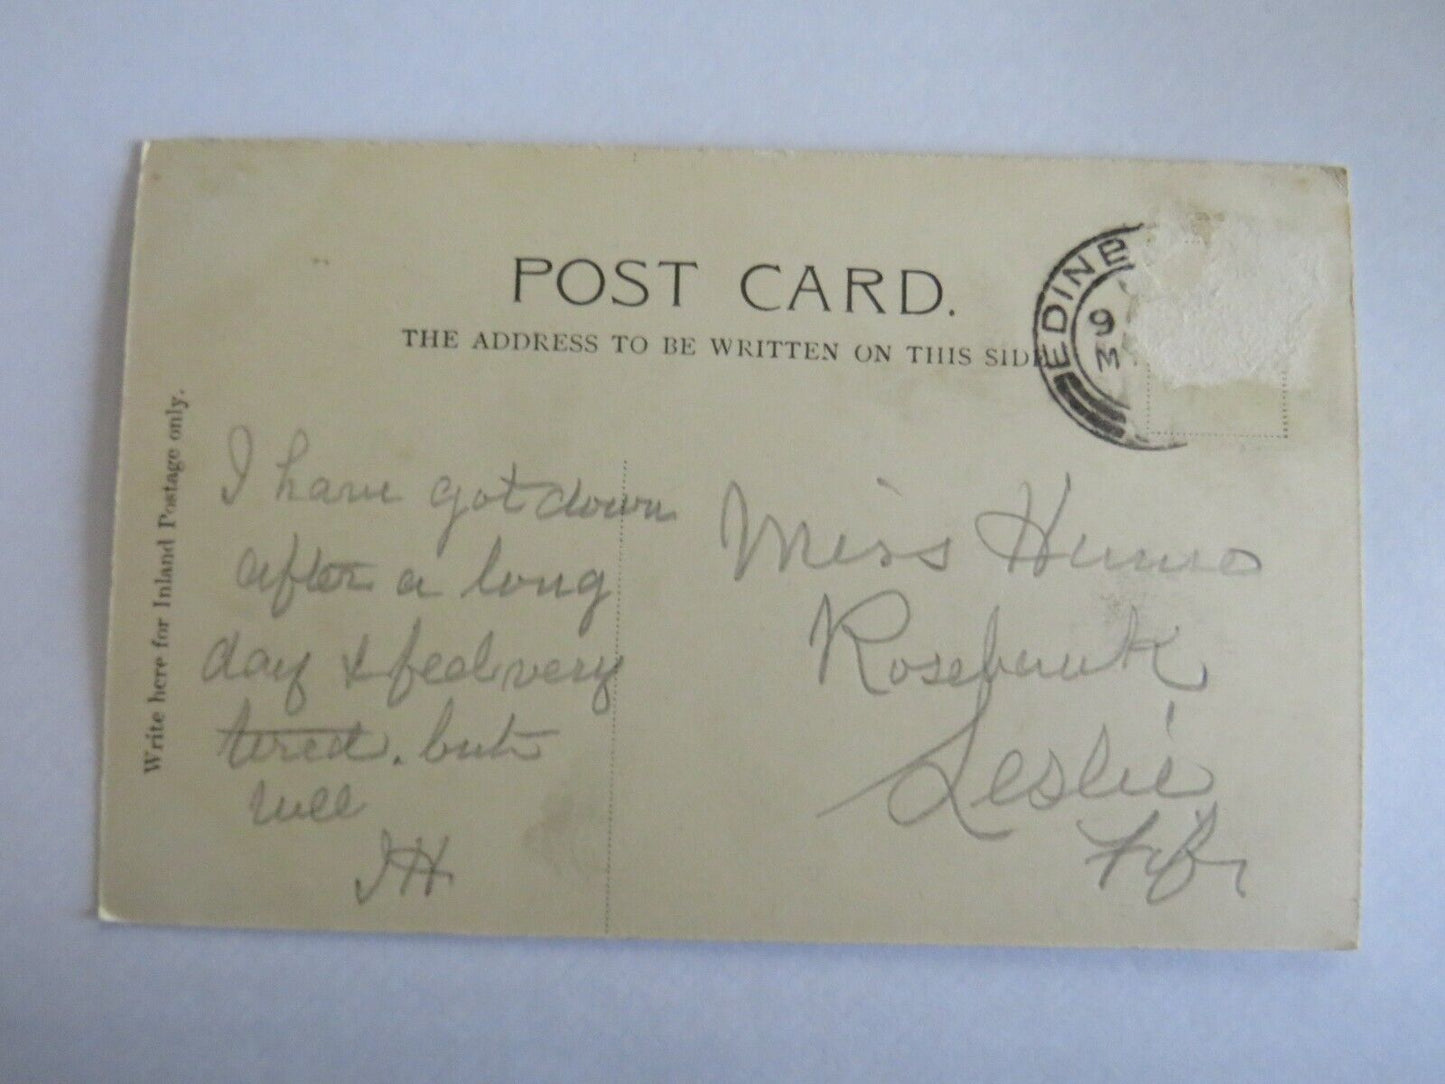 POST CARD.
THE ADDRESS TO BE WRITTEN ON THIS SIDE
EDINB
9
M
Write here for Inland Postage only.
I have got down
after a long
day & feel very
tired. but
well
JH
Miss
Rosebank
Leslie
Fife